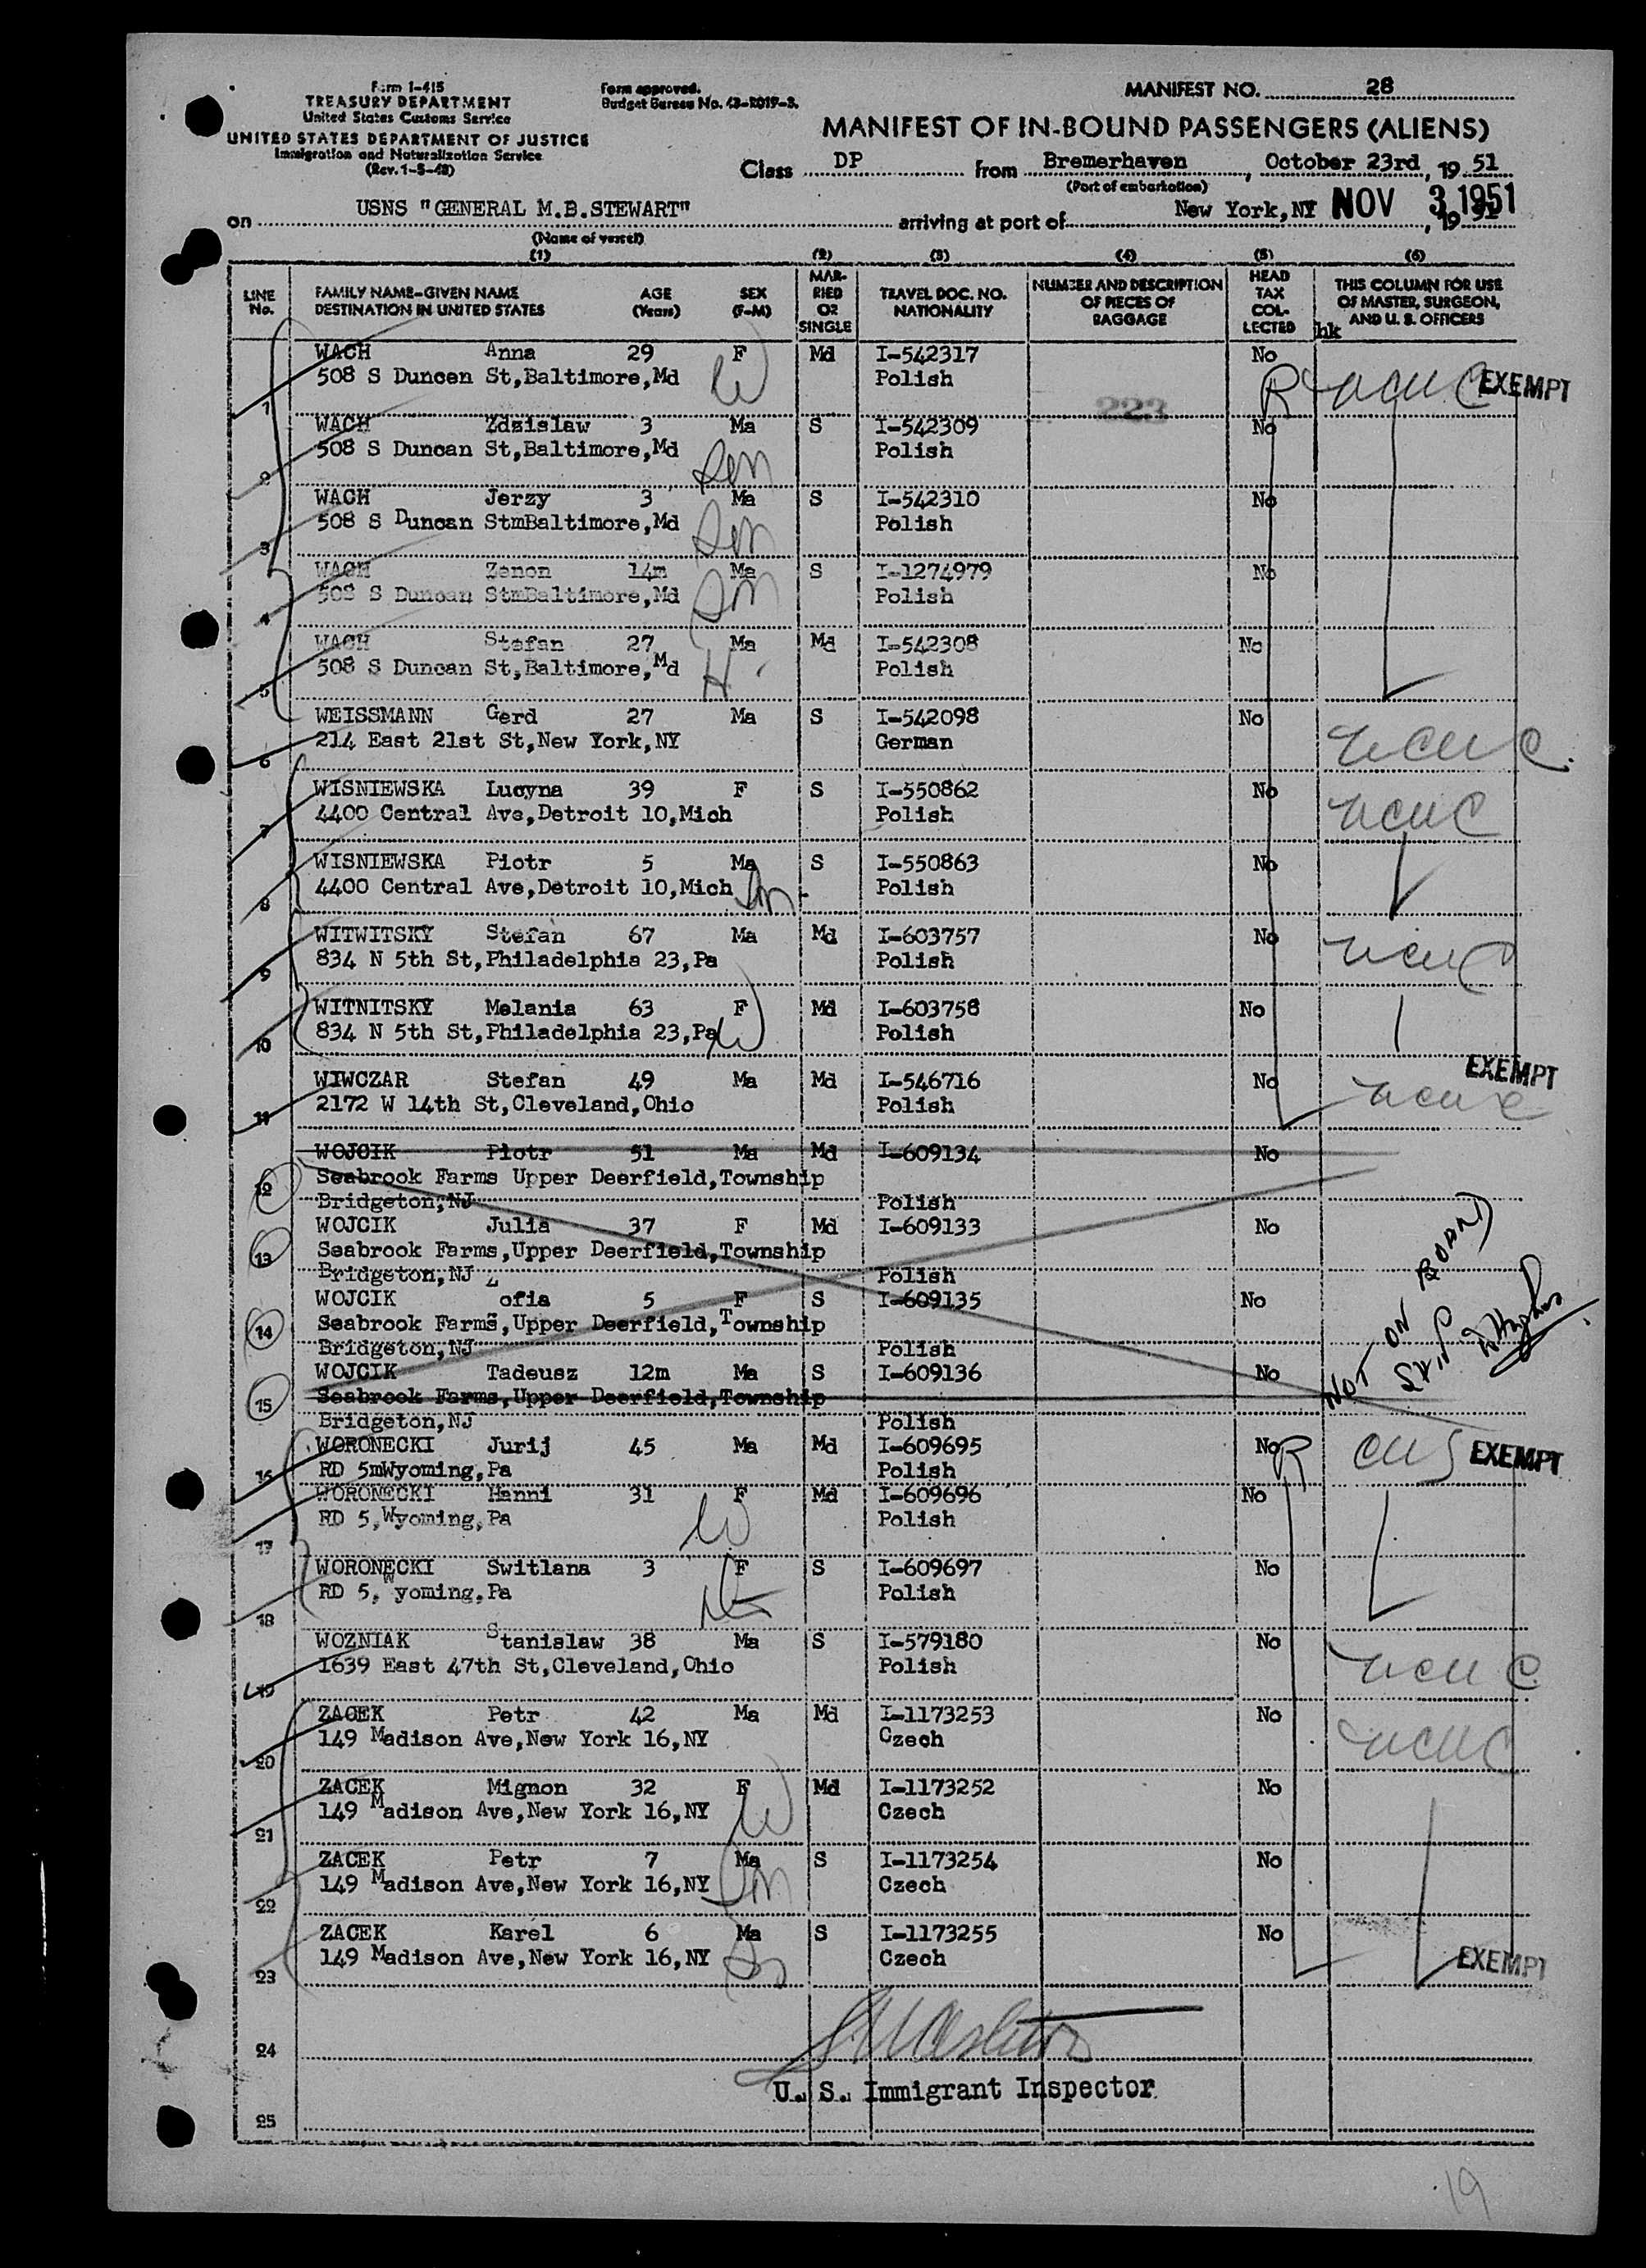 Form I-415
TREASURY DEPARTMENT
United States Customs Service
UNITED STATES DEPARTMENT OF JUSTICE
Immigration and Naturalization Service
(Rev. 1-5-48)
Form approved.
Budget Bureau No. 43-R019-3.
MANIFEST NO. 28
MANIFEST OF IN-BOUND PASSENGERS (ALIENS)
Class DP from Bremerhaven, October 23rd, 19 51
(Port of embarkation)
on USNS "GENERAL M.B.STEWART" arriving at port of New York,NY NOV 3 1951, 19 51
(Name of vessel)
(1) (2) (3) (4) (5) (6)
LINE No. FAMILY NAME-GIVEN NAME DESTINATION IN UNITED STATES AGE (Years) SEX (F-M) MARRIED OR SINGLE TRAVEL DOC. NO. NATIONALITY NUMBER AND DESCRIPTION OF PIECES OF BAGGAGE HEAD TAX COLLECTED THIS COLUMN FOR USE OF MASTER, SURGEON, AND U. S. OFFICERS
hk
WACH Anna 29 F Md I-542317 No
508 S Duncen St,Baltimore,Md W Polish R EXEMPT
1 223
WACH Zdzislaw 3 Ma S I-542309 No
508 S Duncan St,Baltimore,Md Son Polish
2
WACH Jerzy 3 Ma S I-542310 No
508 S Duncan StmBaltimore,Md Son Polish
3
WACH Zenon 14m Ma S I-1274979 No
508 S Duncan StmBaltimore,Md Son Polish
4
WACH Stefan 27 Ma Md I-542308 No
508 S Duncan St,Baltimore,Md H Polish
5
WEISSMANN Gerd 27 Ma S I-542098 No
214 East 21st St,New York,NY German
6
WISNIEWSKA Lucyna 39 F S I-550862 No
4400 Central Ave,Detroit 10,Mich Polish
7
WISNIEWSKA Piotr 5 Ma S I-550863 No
4400 Central Ave,Detroit 10,Mich Son Polish
8
WITWITSKY Stefan 67 Ma Md I-603757 No
834 N 5th St,Philadelphia 23,Pa Polish
9
WITNITSKY Melania 63 F Md I-603758 No
834 N 5th St,Philadelphia 23,Pa W Polish
10
EXEMPT
WIWCZAR Stefan 49 Ma Md I-546716 No
2172 W 14th St,Cleveland,Ohio Polish
11
WOJCIK Piotr 51 Ma Md I-609134 No
Seabrook Farms Upper Deerfield,Township
12
Bridgeton,NJ Polish
WOJCIK Julia 37 F Md I-609133 No
Seabrook Farms,Upper Deerfield,Township
13
Bridgeton,NJ Polish
WOJCIK Zofia 5 F S I-609135 No
Seabrook Farms,Upper Deerfield,Township
14
Bridgeton,NJ Polish
WOJCIK Tadeusz 12m Ma S I-609136 No
Seabrook Farms,Upper Deerfield,Township
15
Bridgeton,NJ Polish
NOT ON BOARD
SHIP
WORONECKI Jurij 45 Ma Md I-609695 No R EXEMPT
RD 5mWyoming,Pa Polish
16
WORONECKI Hanni 31 F Md I-609696 No
RD 5,Wyoming,Pa W Polish
17
WORONECKI Switlana 3 F S I-609697 No
RD 5, Wyoming,Pa Polish
18
WOZNIAK Stanislaw 38 Ma S I-579180 No
1639 East 47th St,Cleveland,Ohio Polish
19
ZACEK Petr 42 Ma Md I-1173253 No
149 Madison Ave,New York 16,NY Czech
20
ZACEK Mignon 32 F Md I-1173252 No
149 Madison Ave,New York 16,NY W Czech
21
ZACEK Petr 7 Ma S I-1173254 No
149 Madison Ave,New York 16,NY Son Czech
22
ZACEK Karel 6 Ma S I-1173255 No
149 Madison Ave,New York 16,NY Son Czech EXEMPT
23
24
U. S. Immigrant Inspector
25
19